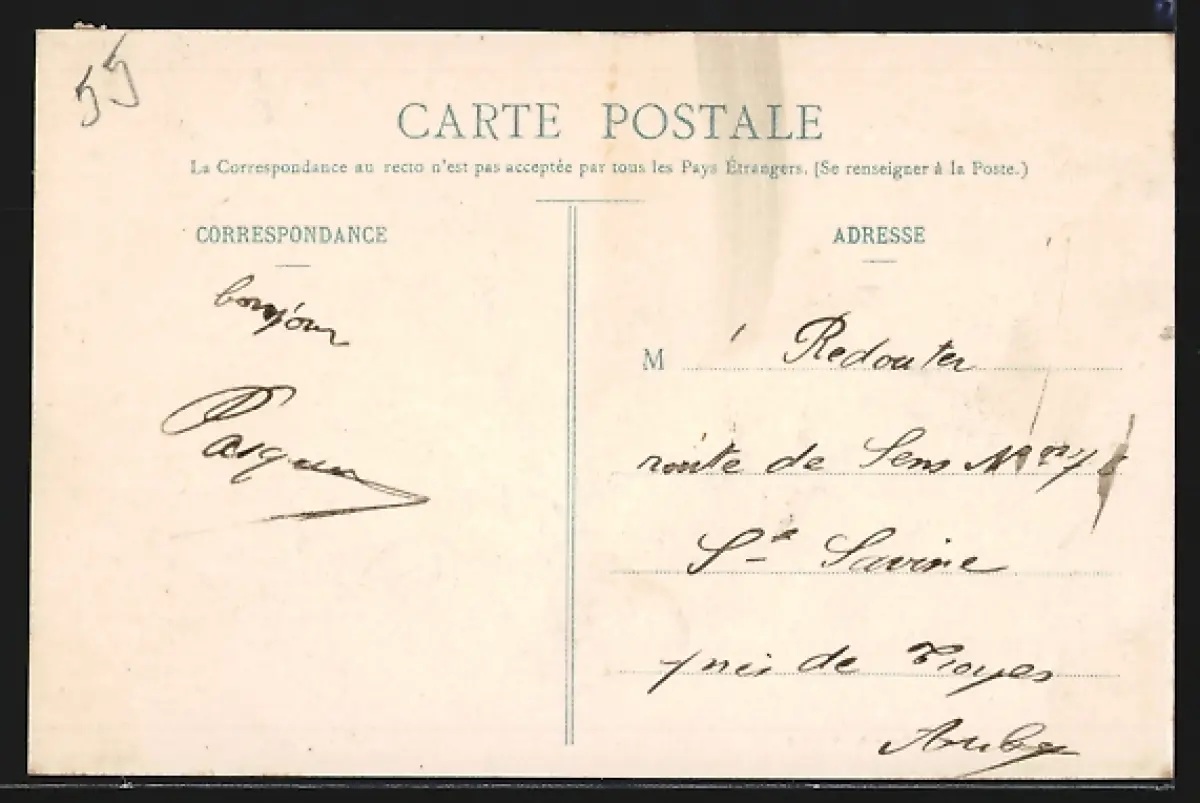 55
CARTE POSTALE
La Correspondance au recto n'est pas acceptée par tous les Pays Étrangers. (Se renseigner à la Poste.)
CORRESPONDANCE
ADRESSE
bonjour
M Redouter
route de Sens
Ste Savine
près de Troyes
Aube